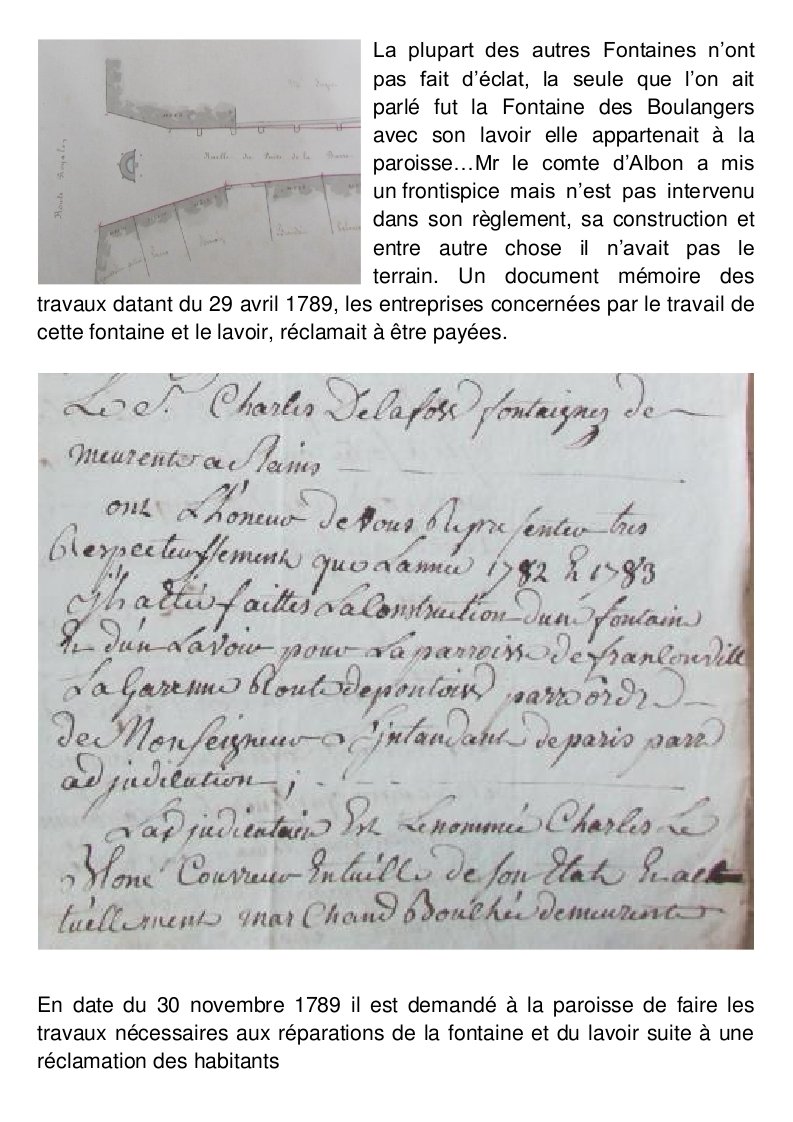 La plupart des autres Fontaines n'ont
pas fait d'éclat, la seule que l'on ait
parlé fut la Fontaine des Boulangers
avec son lavoir elle appartenait à la
paroisse…Mr le comte d'Albon a mis
un frontispice mais n'est pas intervenu
dans son règlement, sa construction et
entre autre chose il n'avait pas le
terrain. Un document mémoire des
travaux datant du 29 avril 1789, les entreprises concernées par le travail de
cette fontaine et le lavoir, réclamait à être payées.
Route Royale
Ruelle du Puits de la Barre
Le Sr. Charles Delafosse fontaignez de
meurente a Stains
ont L'honeur de vous Representer tres
Respecteussement que Lannee 1782 et 1783
faittes La Construction dune fontaine
et dun Lavoir pour La parroisse de franconville
La Garenne Route de pontoise parre ordre
de Monseigneur intandant de paris parre
adjudication ;
Ladjudicataire Est Le nommée Charles Le
Couvreur En tuille de son Etat Et ac
tuellement marchand Bouché demeurente
En date du 30 novembre 1789 il est demandé à la paroisse de faire les
travaux nécessaires aux réparations de la fontaine et du lavoir suite à une
réclamation des habitants